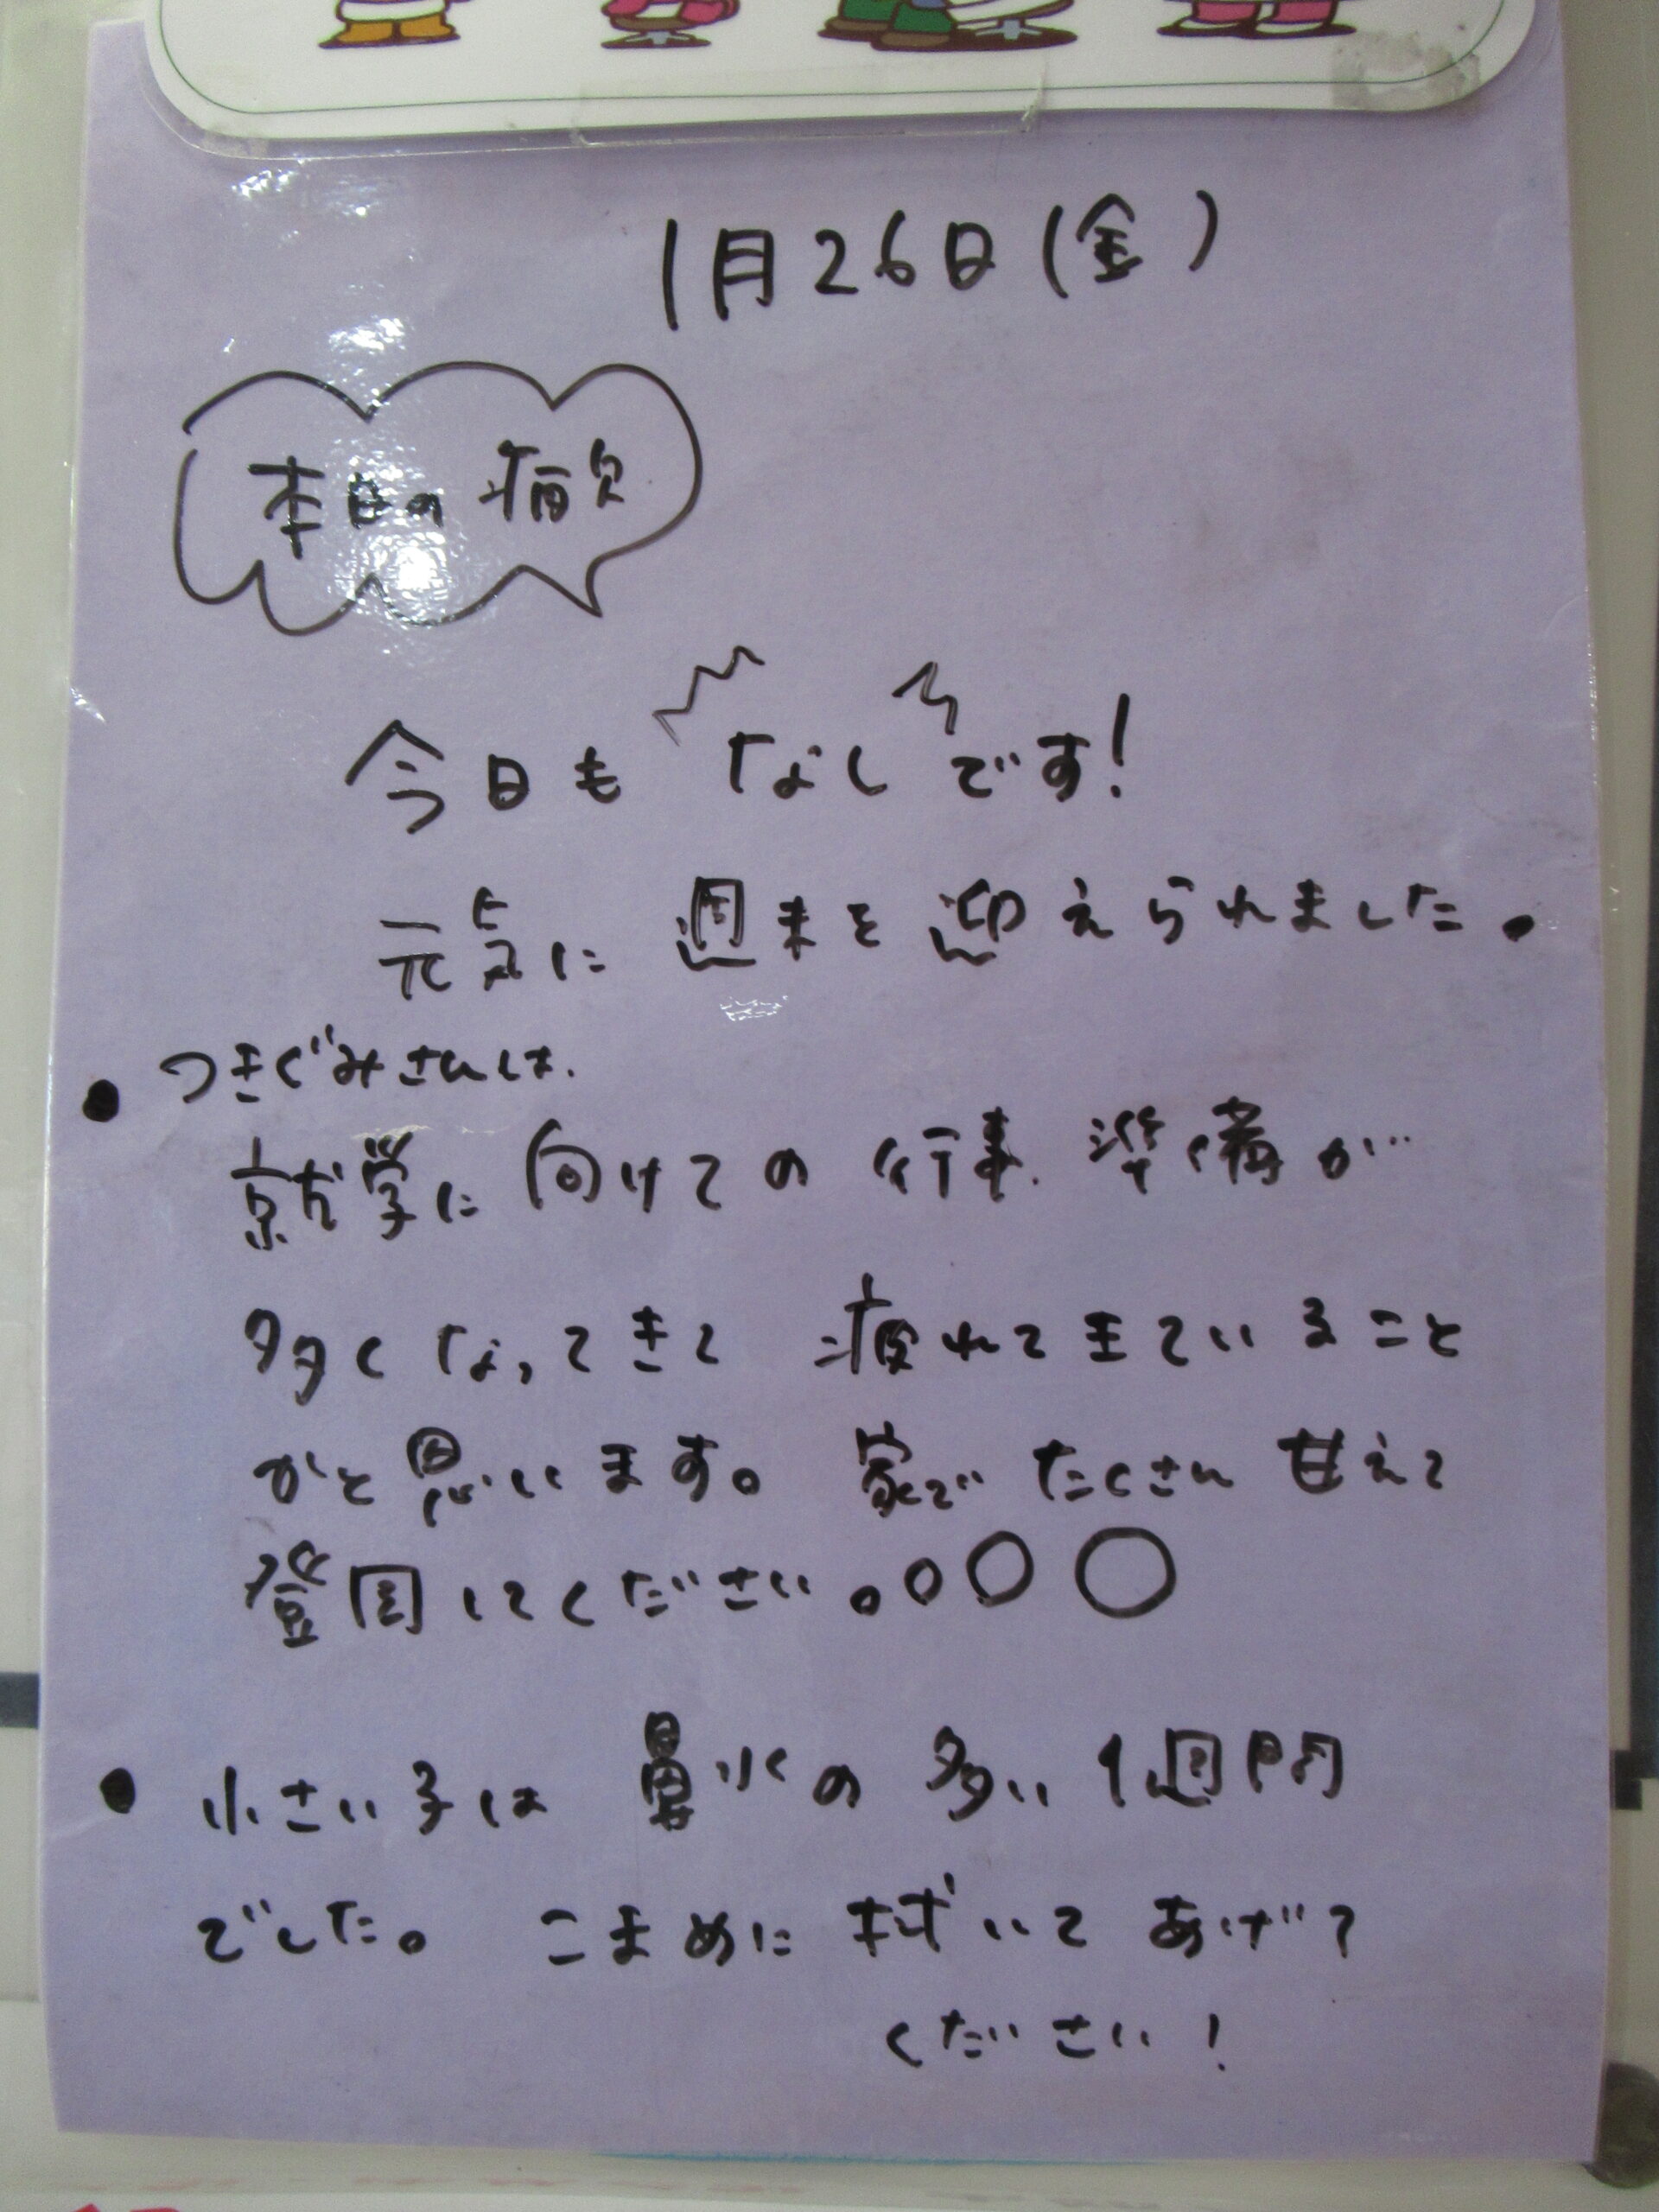 1月26日(金)
本日の病欠
今日も なしです!
元気に 週末を 迎えられました。
● つきぐみさんは、
就学に向けての 行事、準備が
多くなってきて 疲れてきていること
かと思います。 家で たくさん 甘えて
登園してください。○○○
● 小さい子は 鼻水の 多い 1週間
でした。 こまめに 拭いて あげて
ください!